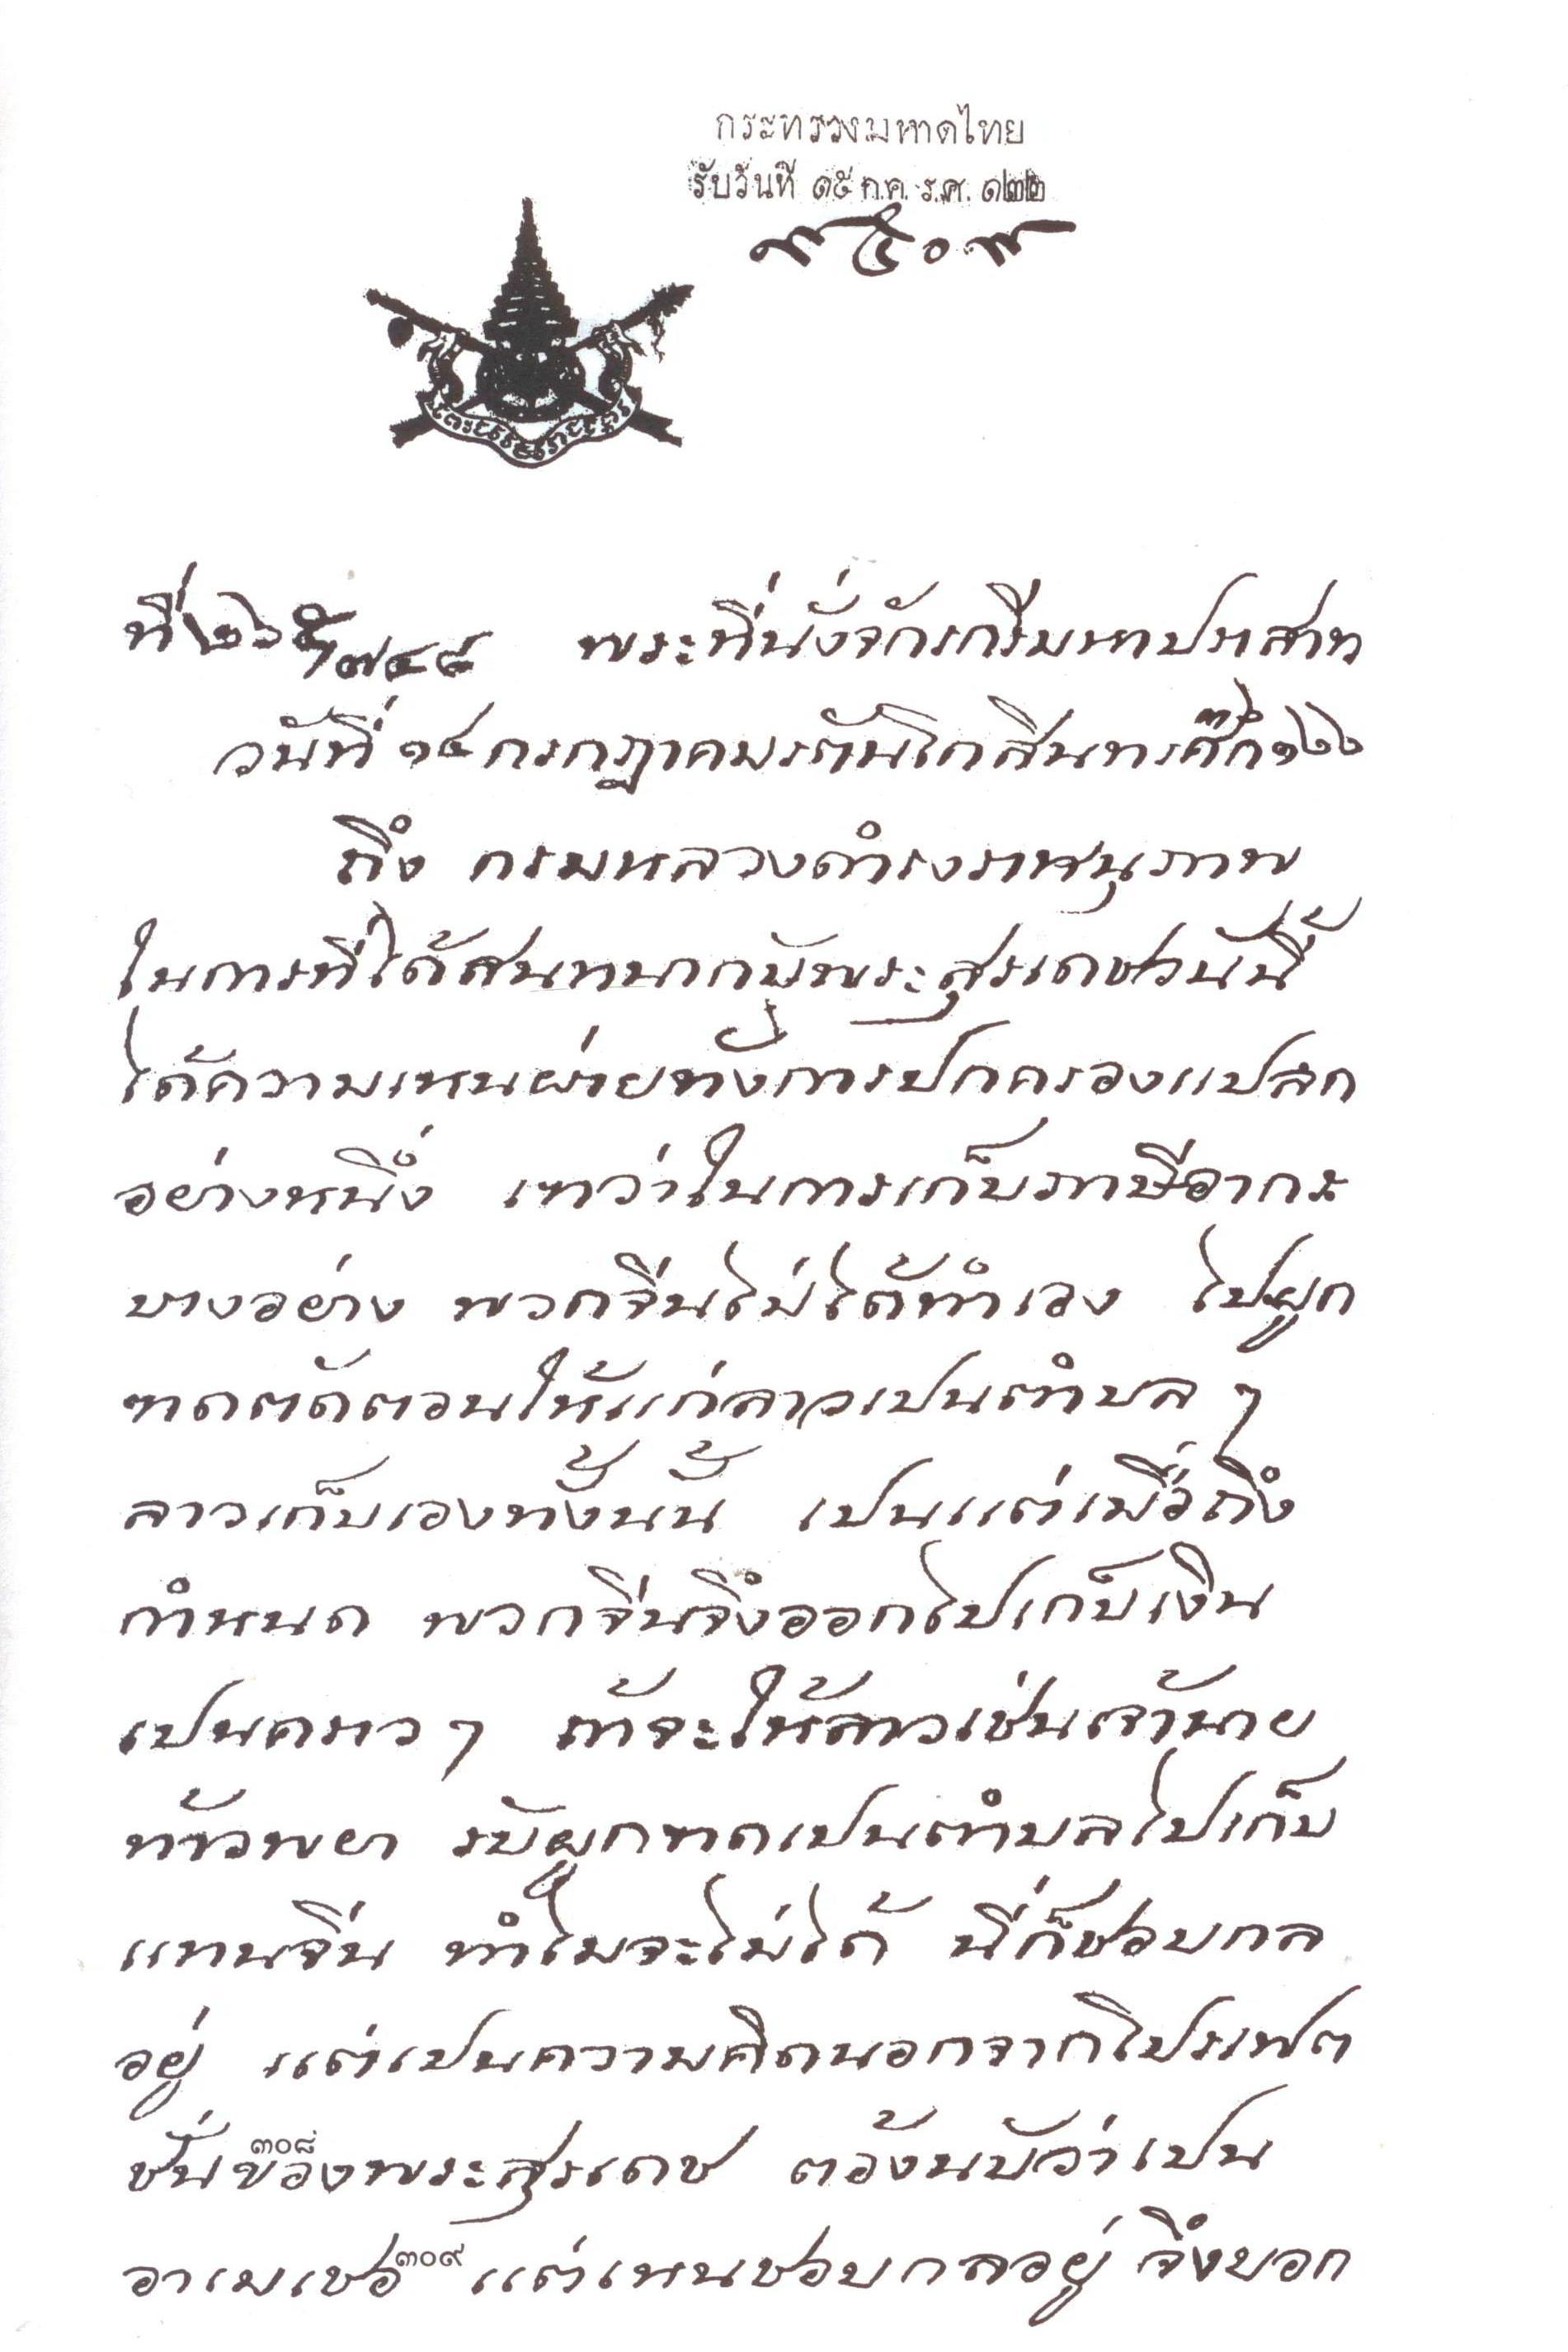 กระทรวงมหาดไทย
รับวันที่ ๑๕ ก.ค. ร.ศ. ๑๒๒
๙๕๐๙
ที่ ๒๖๕/๗๔๘ พระที่นั่งจักรกรีมหาปราสาท
วันที่ ๑๔ กรกฎาคม รัตนโกสินทรศก ๑๒๒
ถึง กรมหลวงดำรงราชานุภาพ
ในการที่ได้สนทนากับพระสุรเดชวันนี้
ได้ความเหนฝ่ายทางการปกครองแปลก
อย่างหนึ่ง เขาว่าในการเก็บภาษีอากร
บางอย่าง พวกจีนไม่ได้ทำเอง ไปผูก
ฃาดตัดตอนให้แก่ลาวเปนตำบล ๆ
ลาวเก็บเองทั้งนั้น เปนแต่เมื่อถึง
กำหนด พวกจีนจึงออกไปเก็บเงิน
เปนคราว ๆ ถ้าจะให้ลาวเช่นเจ้านาย
ท้าวพยา รับผูกฃาดเปนตำบลไปเก็บ
แทนจีน ทำไมจะไม่ได้ นี่ก็ชอบกล
อยู่ แต่เปนความคิดนอกจากโปรเฟต
ชั่น๓๐๘ของพระสุรเดช ต้องนับว่าเปน
อาเมเชอ๓๐๙ แต่เหนชอบกลอยู่ จึงบอก